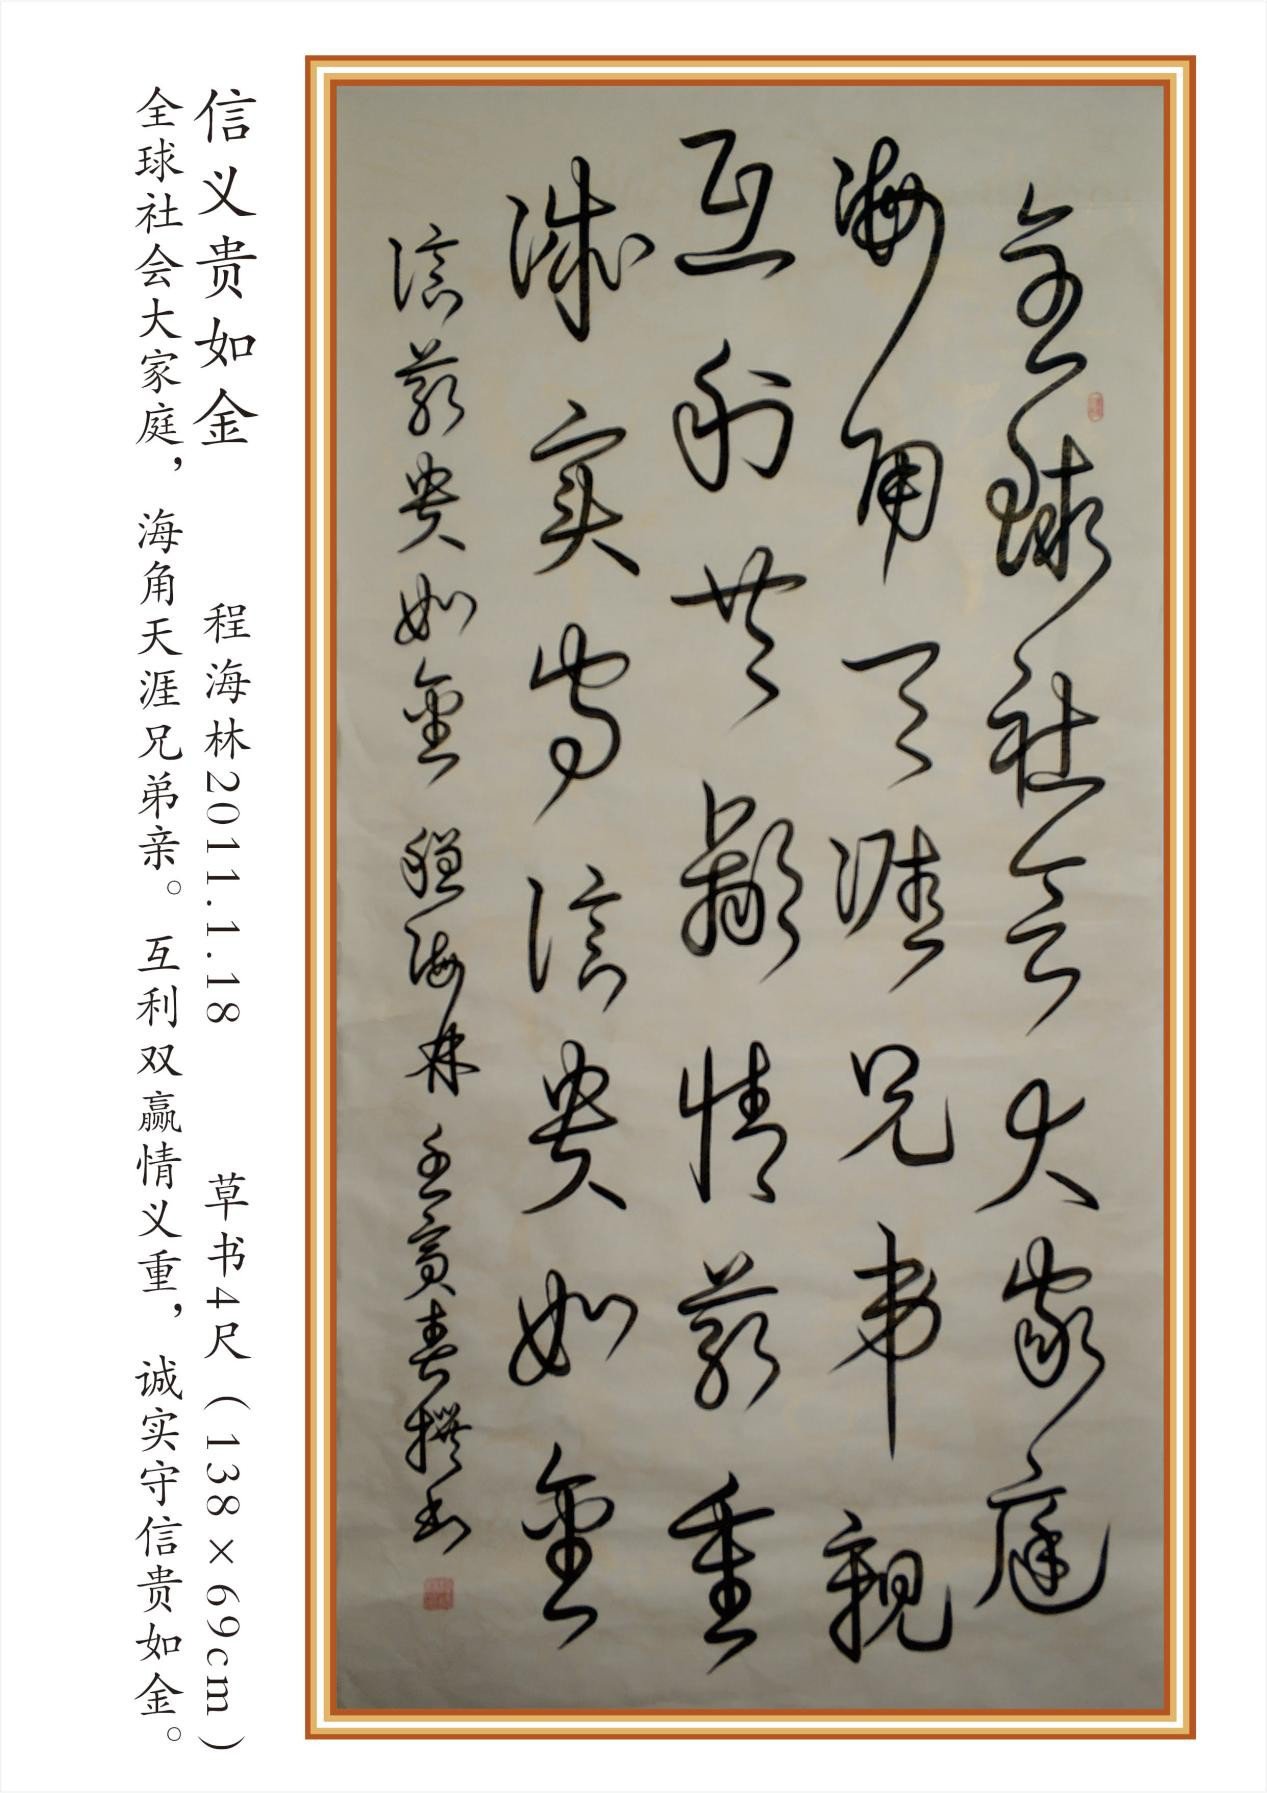 全球社会大家庭
海角天涯兄弟親
互利共赢情義重
诚实守信贵如金
信義贵如金 程海林 壬寅春撰书
信义贵如金 程海林2011.1.18 草书4尺（138×69cm）
全球社会大家庭，海角天涯兄弟亲。互利双赢情义重，诚实守信贵如金。